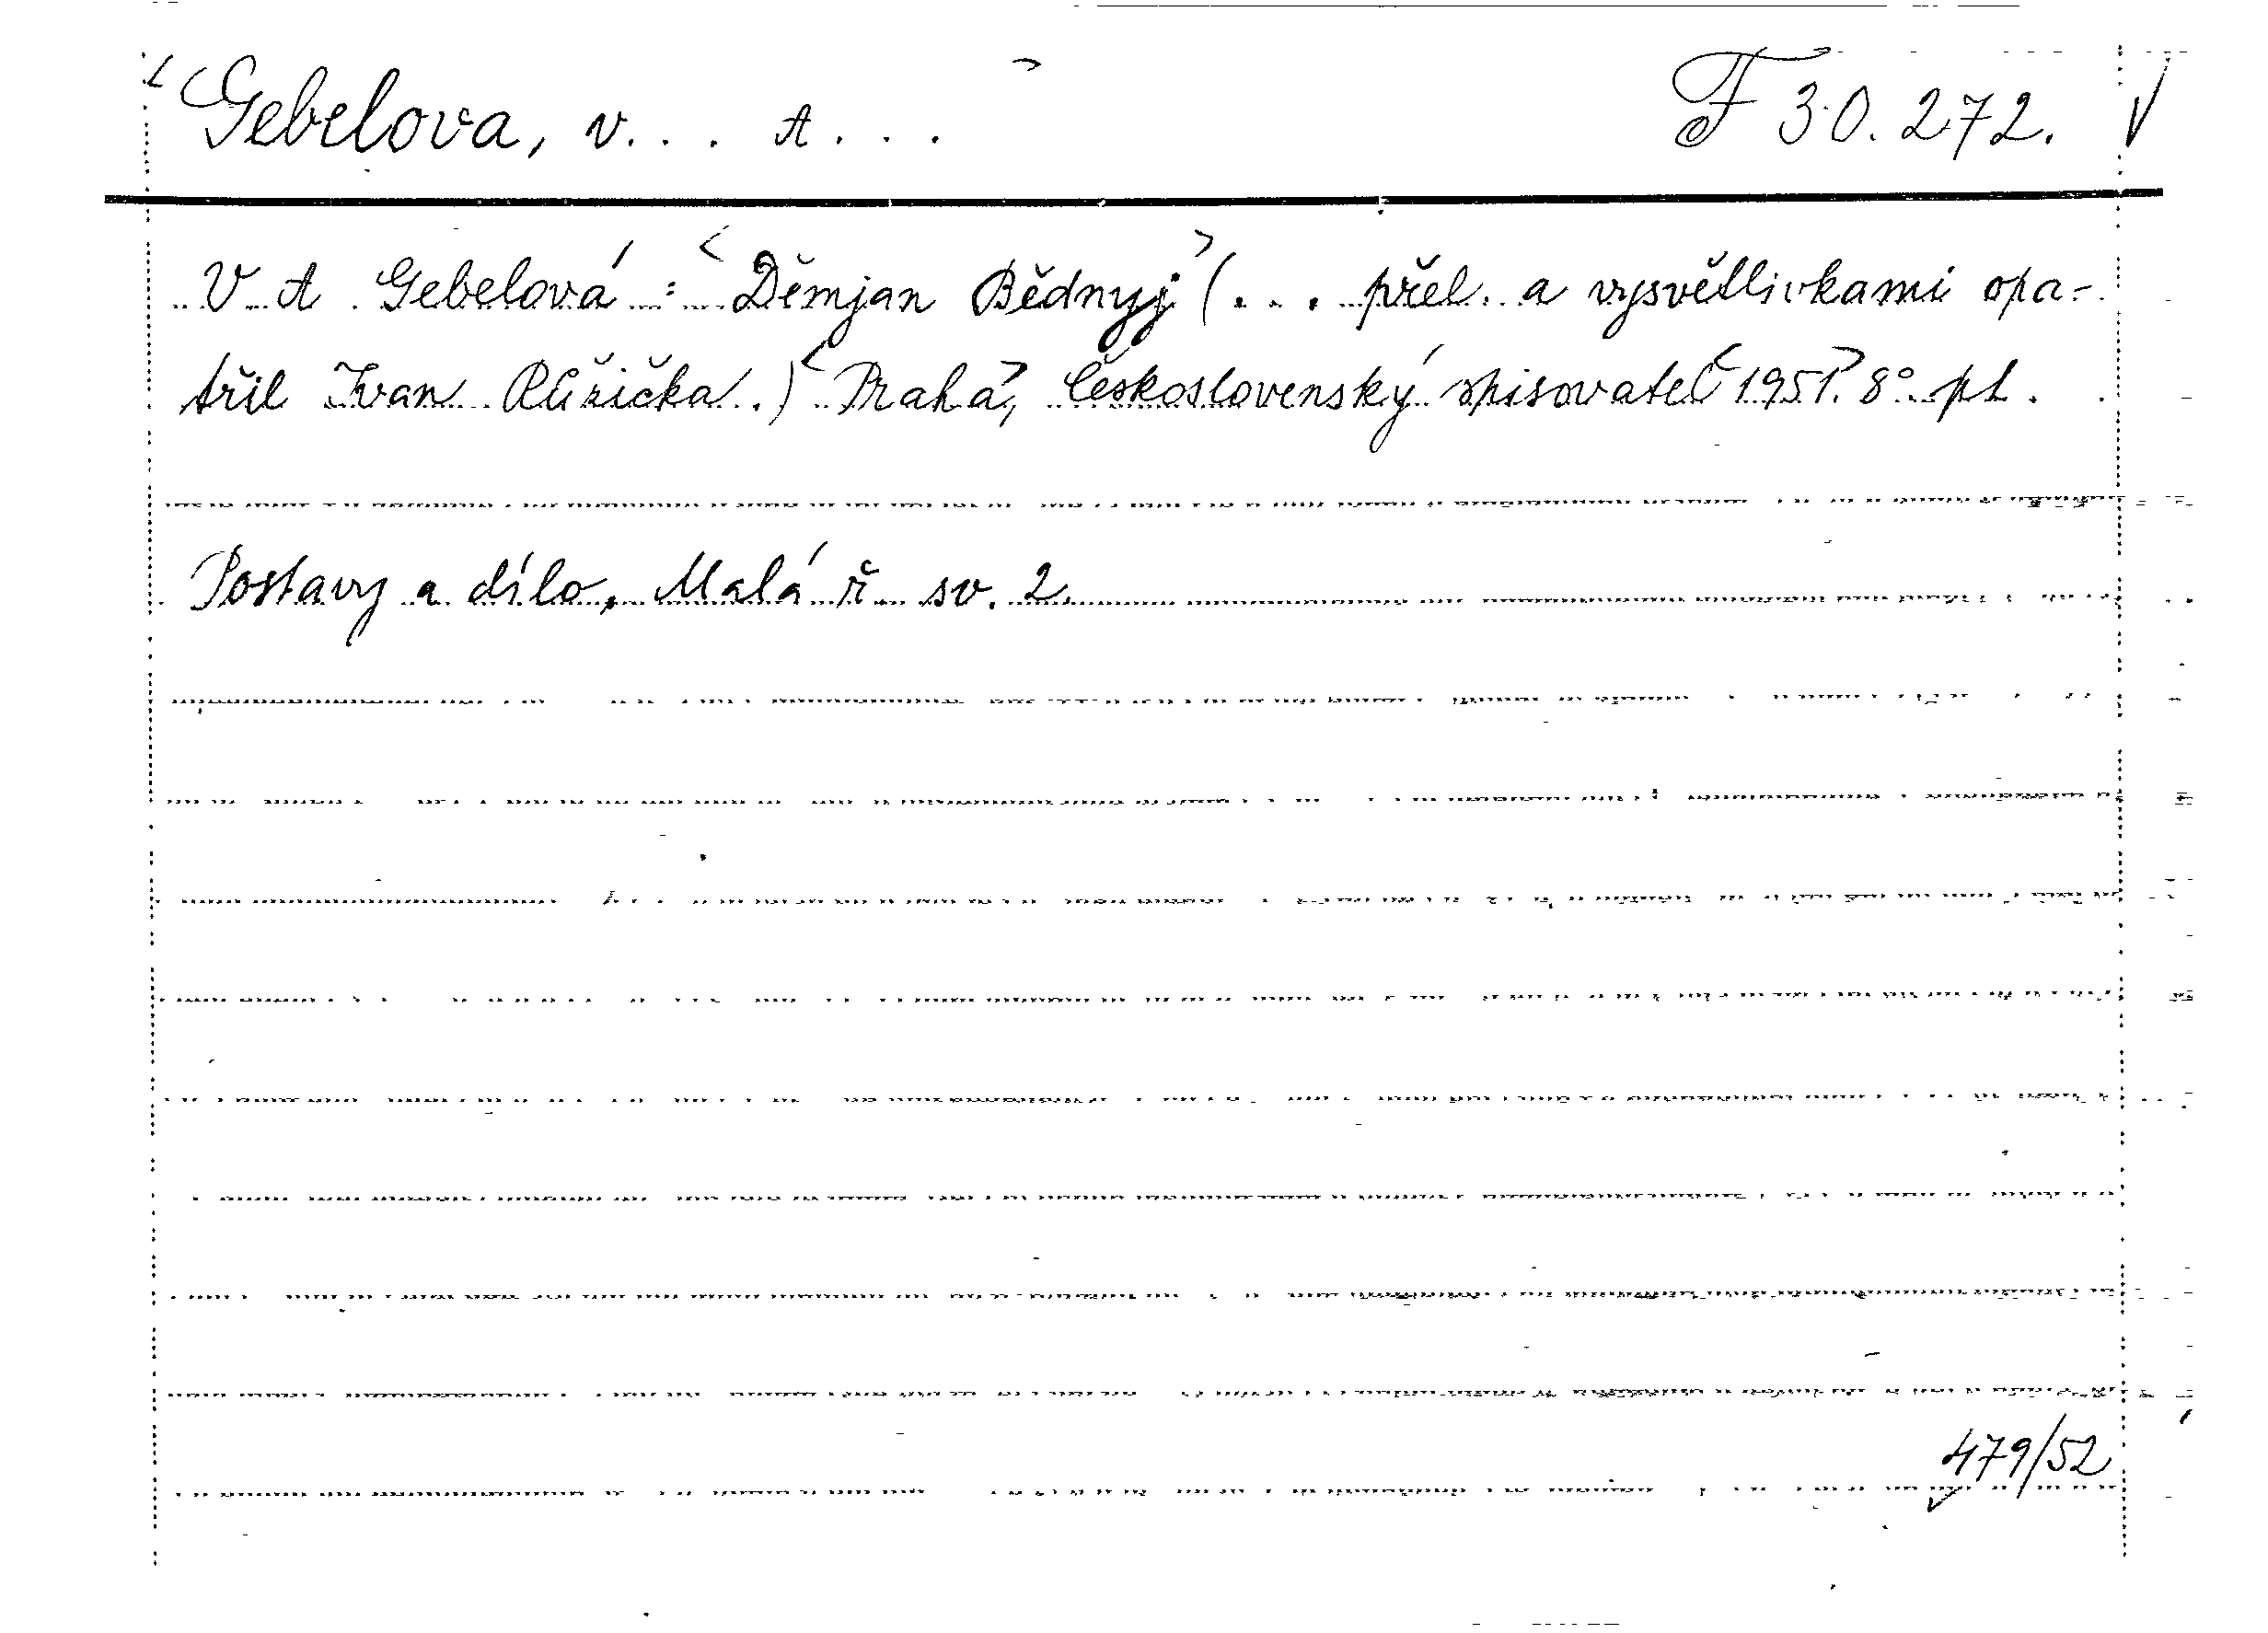 Gebelova, V... A... F 30.272.
V A Gebelová : Děmjan Bědnyj (... přel. a vysvětlivkami opa-
třil Ivan Růžička.) Praha, Československý spisovatel 1951. 8° pt.
Postavy a dílo, Malá ř. sv. 2.
479/52